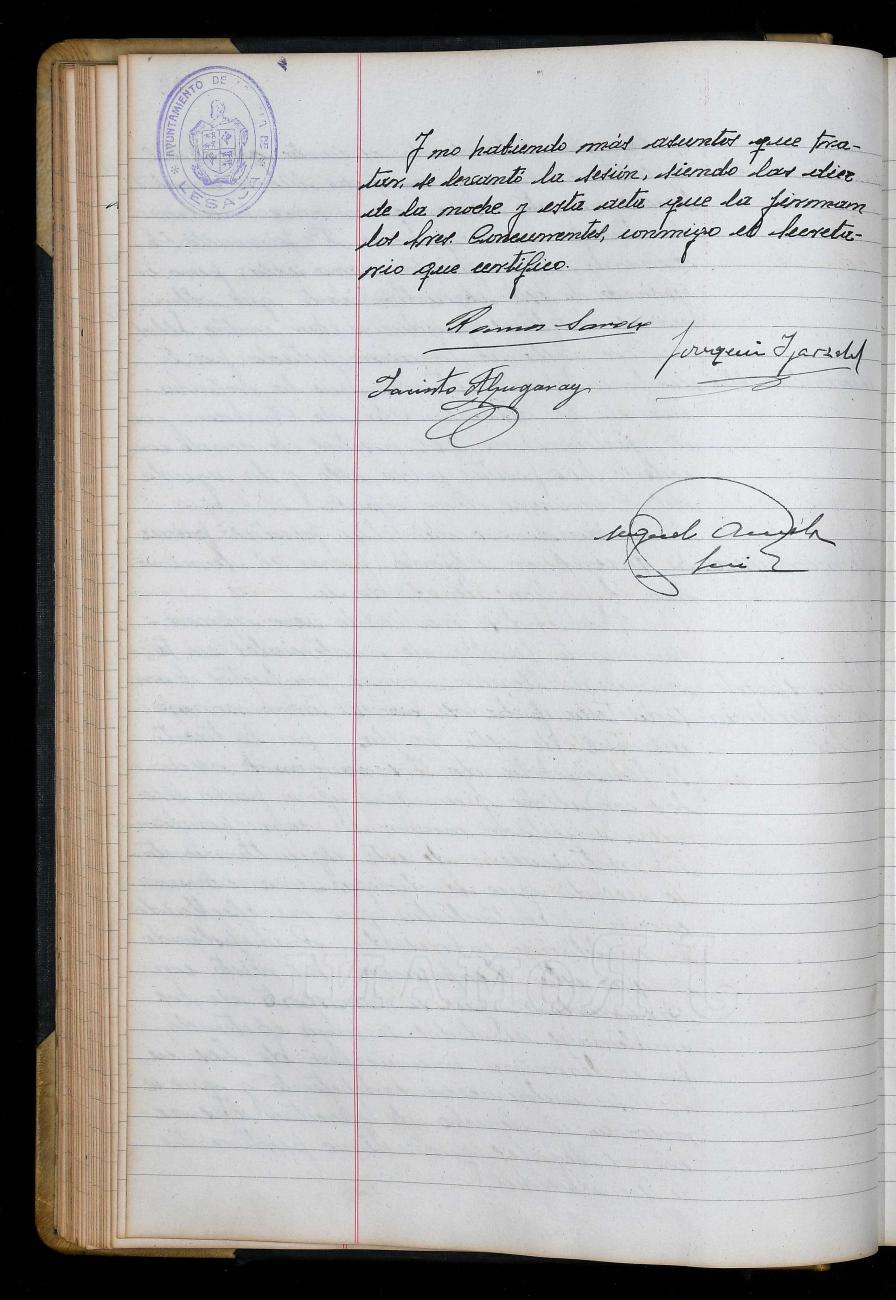 AYUNTAMIENTO DE LA VILLA DE
LESACA
Y no habiendo más asuntos que tra-
tar, se levantó la sesión, siendo las diez
de la noche y esta acta que la firman
los Sres. Concurrentes, conmigo el Secreta-
rio que certifico.
Ramon
Joaquin
Jacinto Alzugaray
Miguel